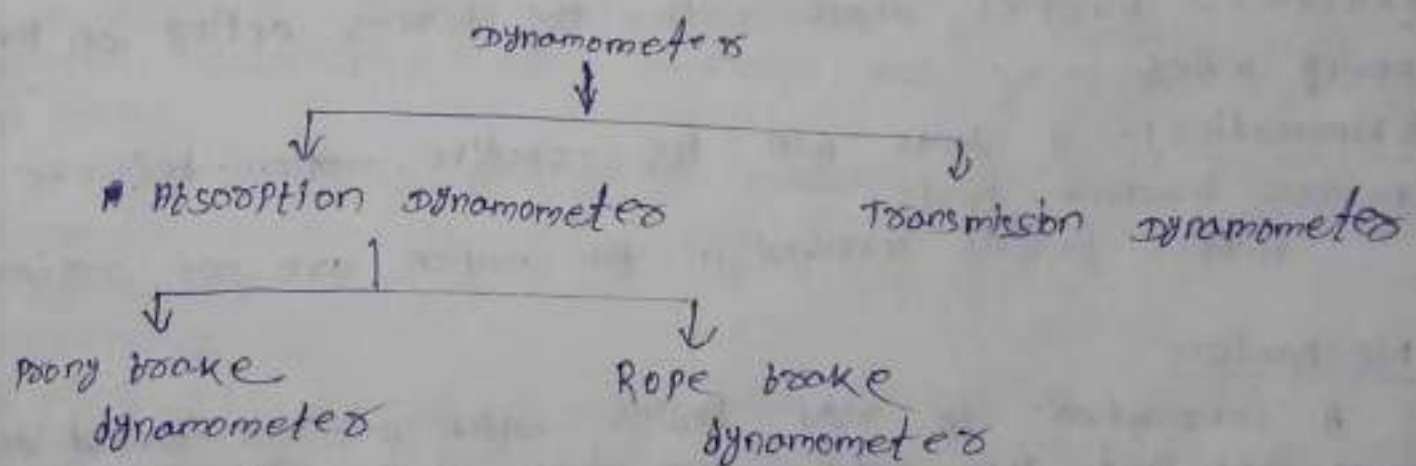 Dynamometer
Absorption Dynamometer Transmission Dynamometer
prony brake Rope brake
dynamometer dynamometer